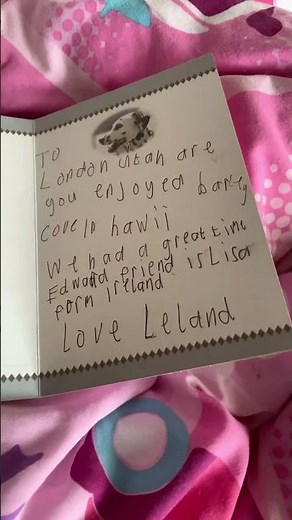 To
London utah are
you enjoyed barley
cove in hawii
We had a great time
Edward friend is Lisa
form Ireland
Love Leland